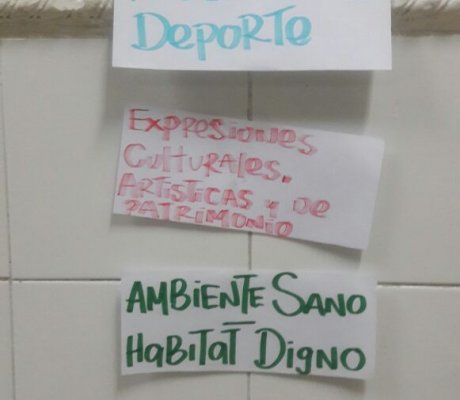 DePORTe
EXPRESIONES
CULTURALES,
ARTISTICAS Y DE
PATRIMONIO
AMBIENTE SANO
HaBITaT DIGNO